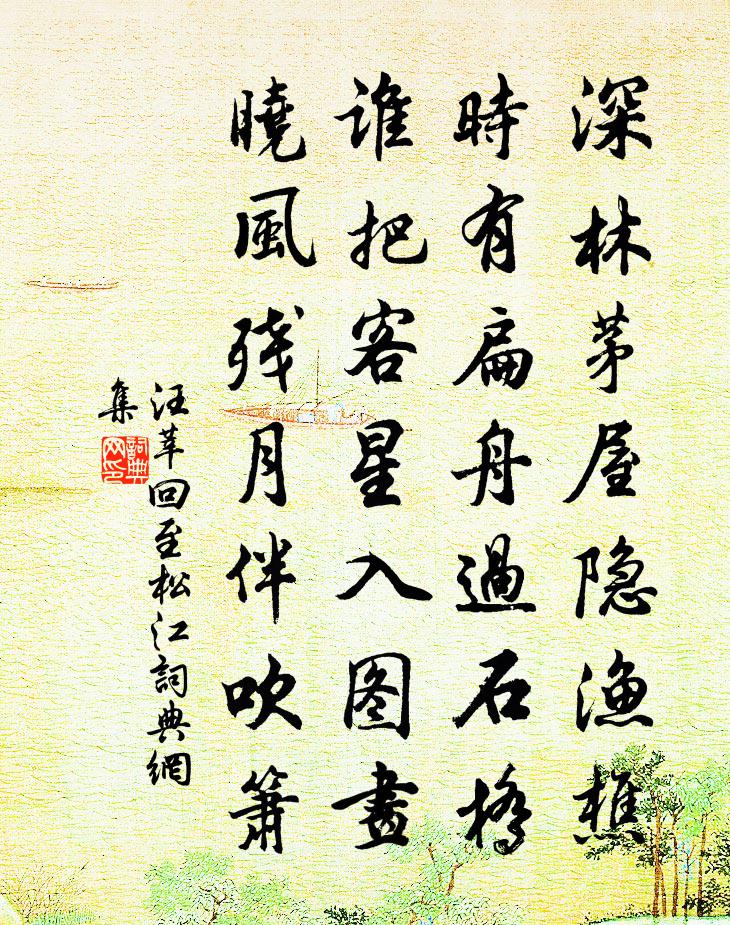 深林茅屋隐渔樵
時有扁舟過石橋
谁把客星入图畫
曉風残月伴吹簫
汪莘回至松江詞典網
集
詞典
网印